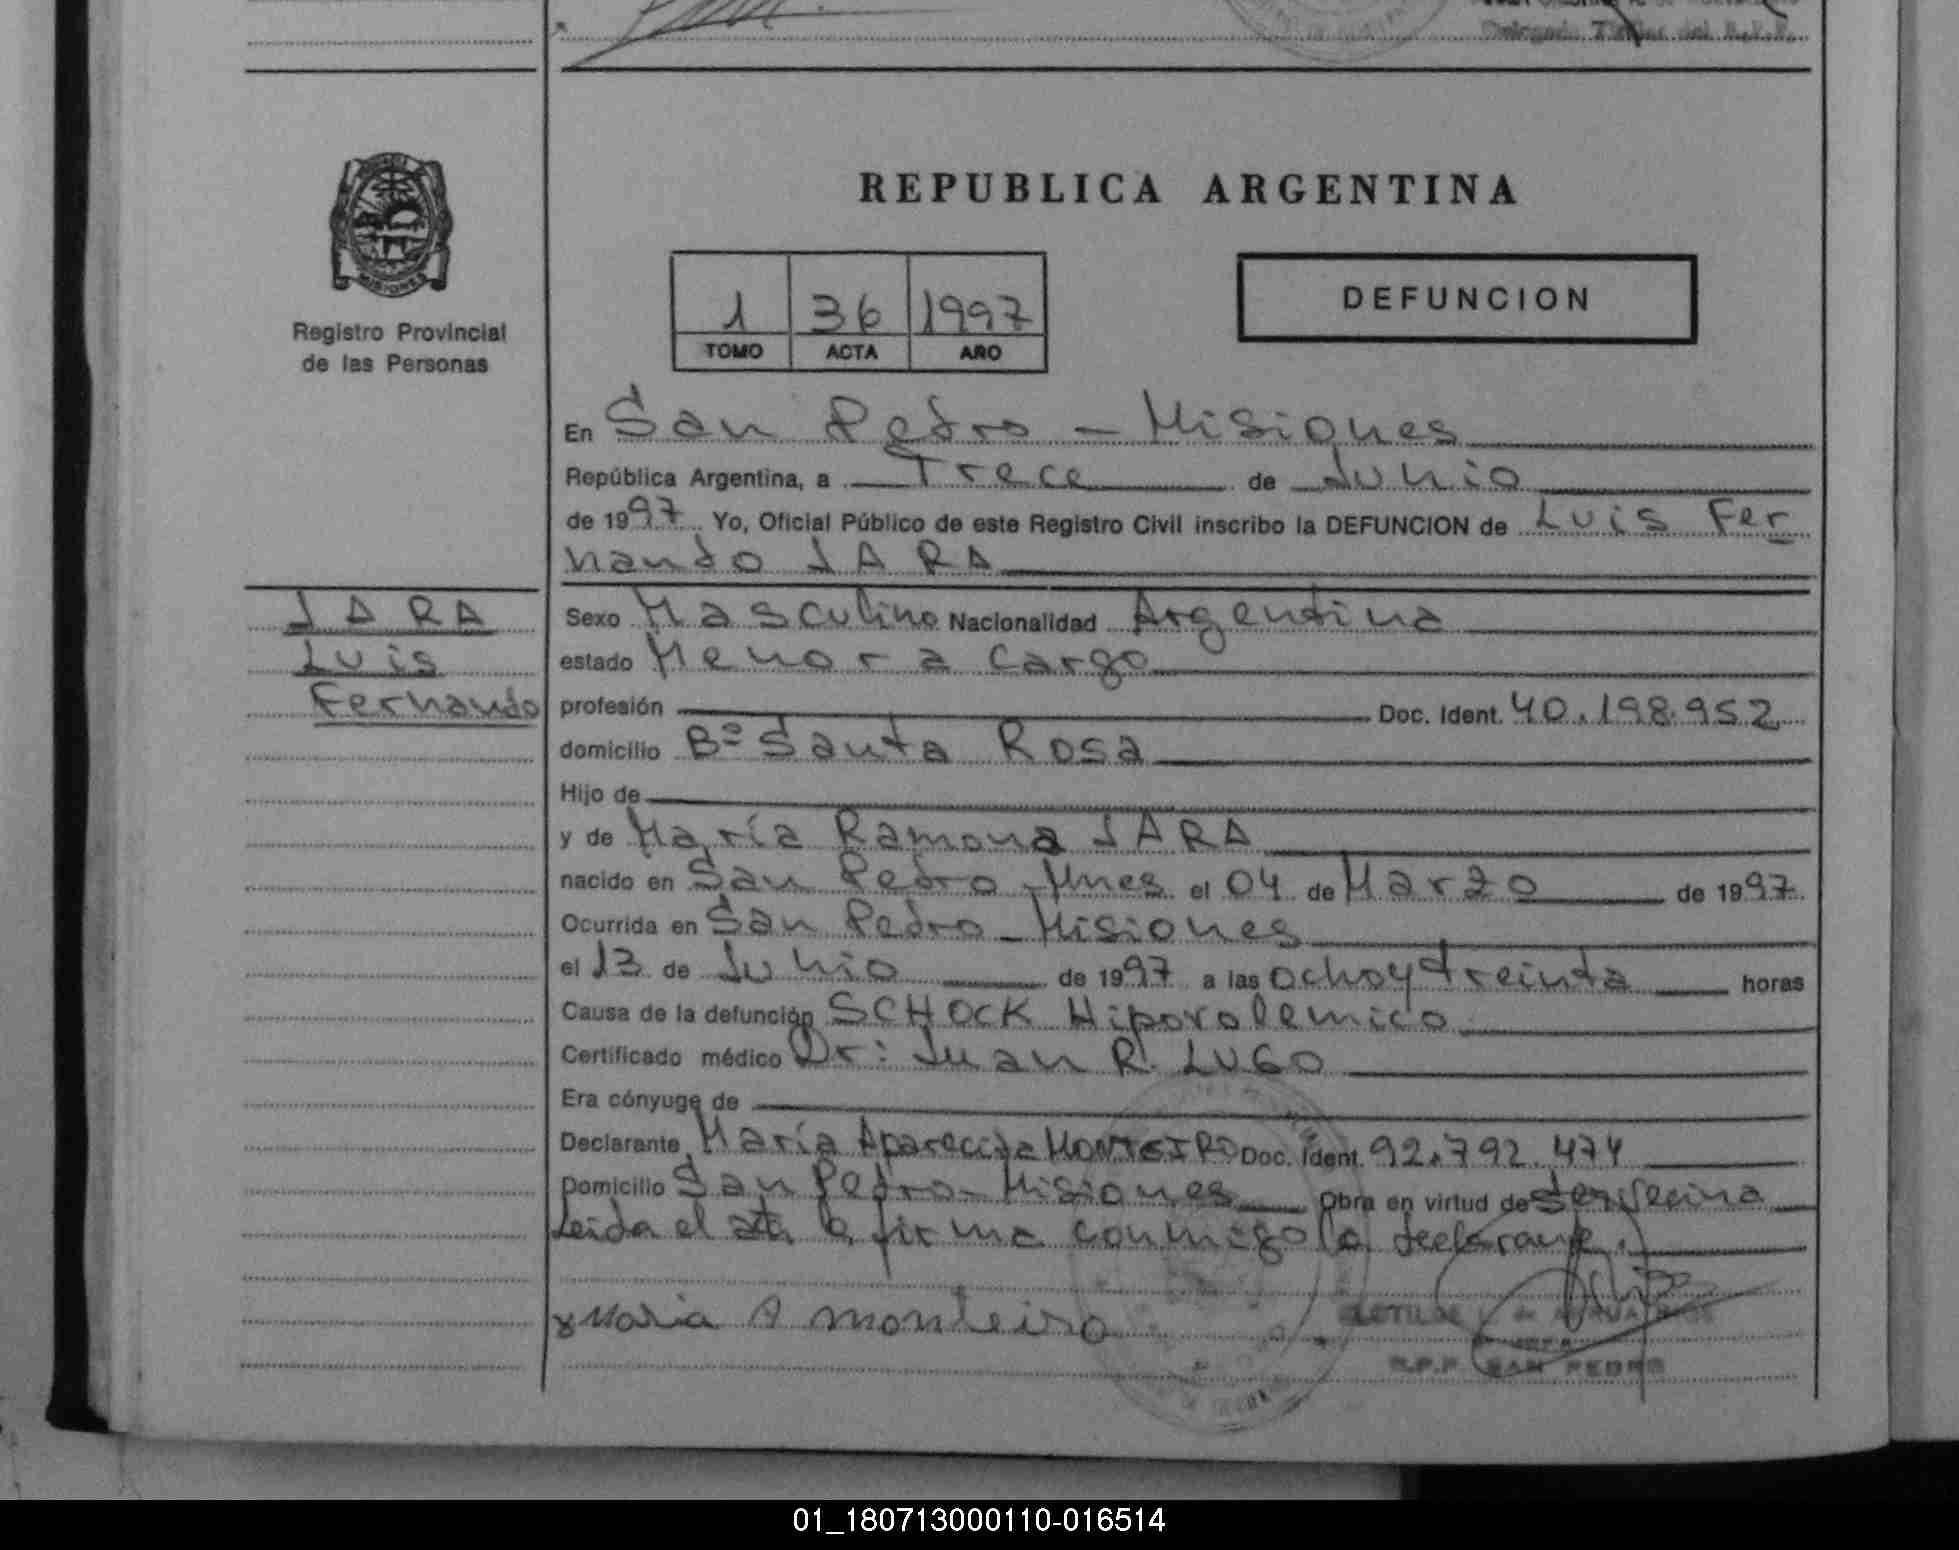 Delegado Titular del R.P.P.
MISIONES
Registro Provincial
de las Personas
REPUBLICA ARGENTINA
1 36 1997
TOMO ACTA AÑO
DEFUNCION
En San Pedro - Misiones
República Argentina, a Trece de Junio
de 1997 Yo, Oficial Público de este Registro Civil inscribo la DEFUNCION de Luis Fer
nando JARA
JARA
Luis
Fernando
Sexo Masculino Nacionalidad Argentina
estado Menor a cargo
profesión Doc. Ident. 40.198.952
domicilio Bº Santa Rosa
Hijo de
y de María Ramona JARA
nacido en San Pedro - Mnes el 04 de Marzo de 1997
Ocurrida en San Pedro - Misiones
el 13 de Junio de 1997 a las ocho y treinta horas
Causa de la defunción SCHOCK Hipovolemico
Certificado médico Dr: Juan R. LUGO
Era cónyuge de
Declarante María Aparecida MONTEIRO Doc. Ident. 92.792.474
Domicilio San Pedro - Misiones Obra en virtud de ser vecina
Leida el acta la firma conmigo la declarante.
x Maria A monteiro
R.P.P. SAN PEDRO
01_180713000110-016514